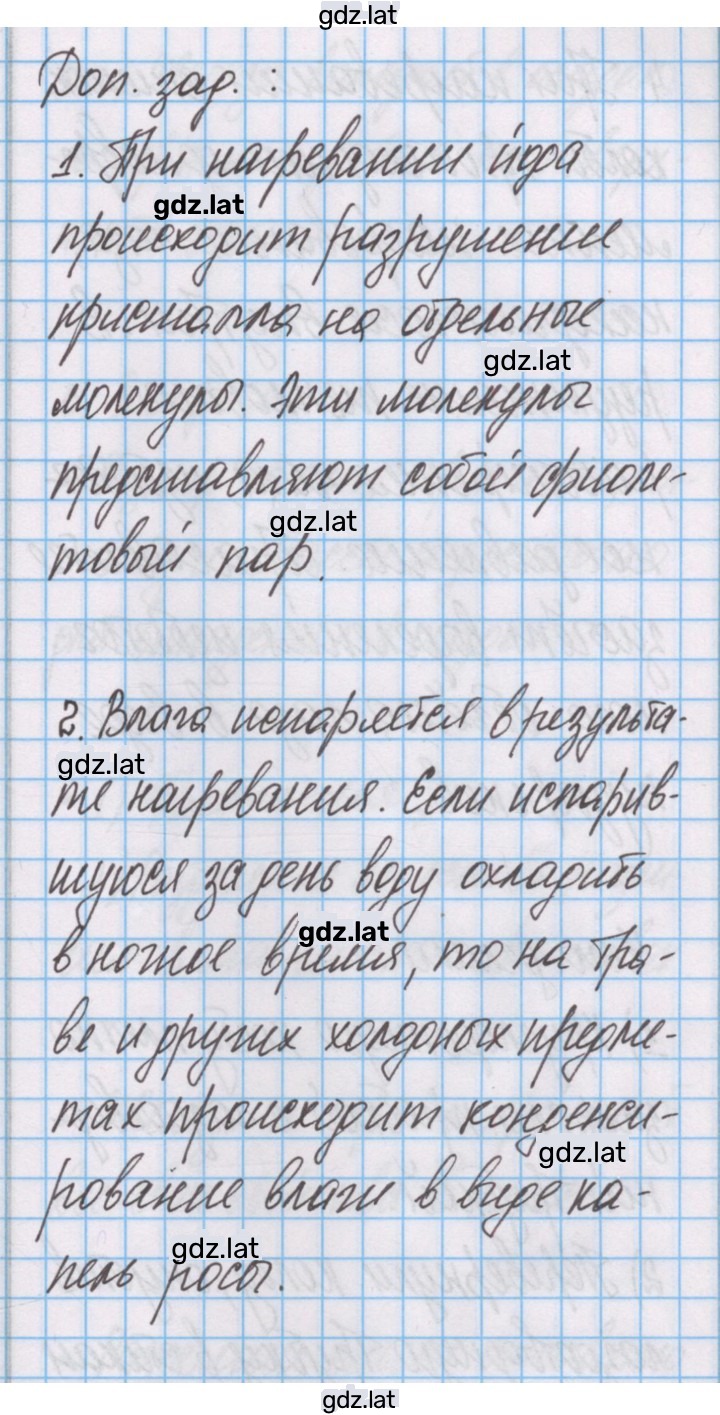 gdz.lat
Доп. зад. :
1. При нагревании йода
gdz.lat
происходит разрушение
кристалла на отдельные
gdz.lat
молекулы. Эти молекулы
представляют собой фиоле-
gdz.lat
товый пар.
2. Влага испаряется в результа-
gdz.lat
те нагревания. Если испарив-
шуюся за день воду охладить
gdz.lat
в ночное время, то на тра-
ве и других холдоных предме-
тах происходит конденси-
gdz.lat
рование влаги в виде ка-
gdz.lat
пель росы.
gdz.lat